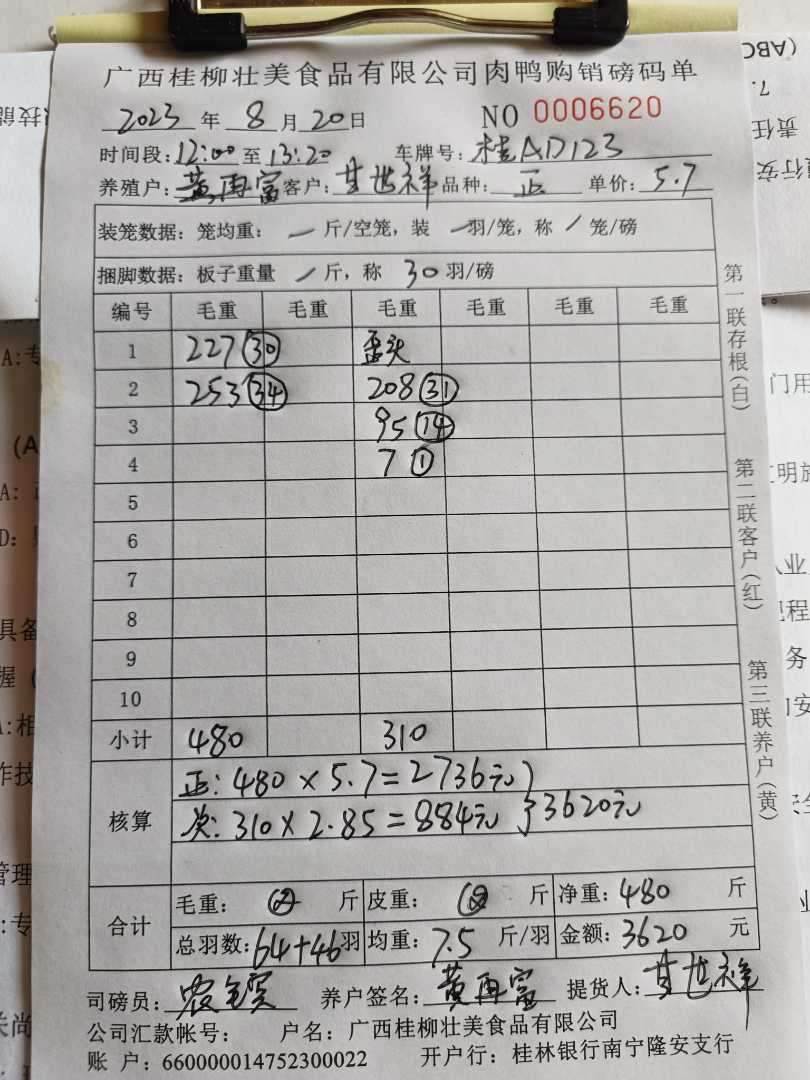 广西桂柳壮美食品有限公司肉鸭购销磅码单
2023 年 8 月 20 日 NO 0006620
时间段: 12:00 至 13:20 车牌号: 桂AD123
养殖户: 黄再富 客户: 甘世祥 品种: 正 单价: 5.7
装笼数据: 笼均重: — 斤/空笼, 装 — 羽/笼, 称 / 笼/磅
捆脚数据: 板子重量 — 斤, 称 30 羽/磅
编号 毛重 毛重 毛重 毛重 毛重 毛重
1 227 (30) 歪头
2 253 (34) 208 (31)
3 95 (14)
4 7 (1)
5
6
7
8
9
10
小计 480 310
核算 正: 480 × 5.7 = 2736元 }
次: 310 × 2.85 = 884元 } 3620元
合计 毛重: 斤 皮重: 斤 净重: 480 斤
总羽数: 64+46 羽 均重: 7.5 斤/羽 金额: 3620 元
司磅员: 养户签名: 黄再富 提货人: 甘世祥
公司汇款帐号: 户名: 广西桂柳壮美食品有限公司
账 户: 660000014752300022 开户行: 桂林银行南宁隆安支行
第一联存根(白) 第二联客户(红) 第三联养户(黄)